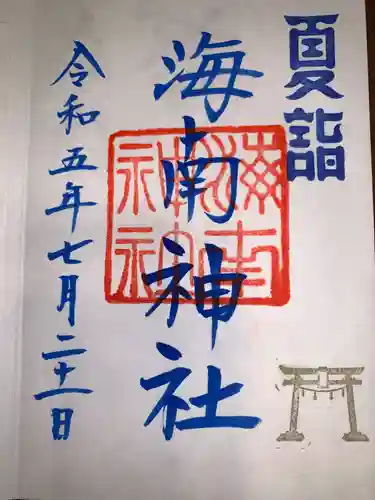 夏詣
海南神社
令和五年七月二十一日
海南神社